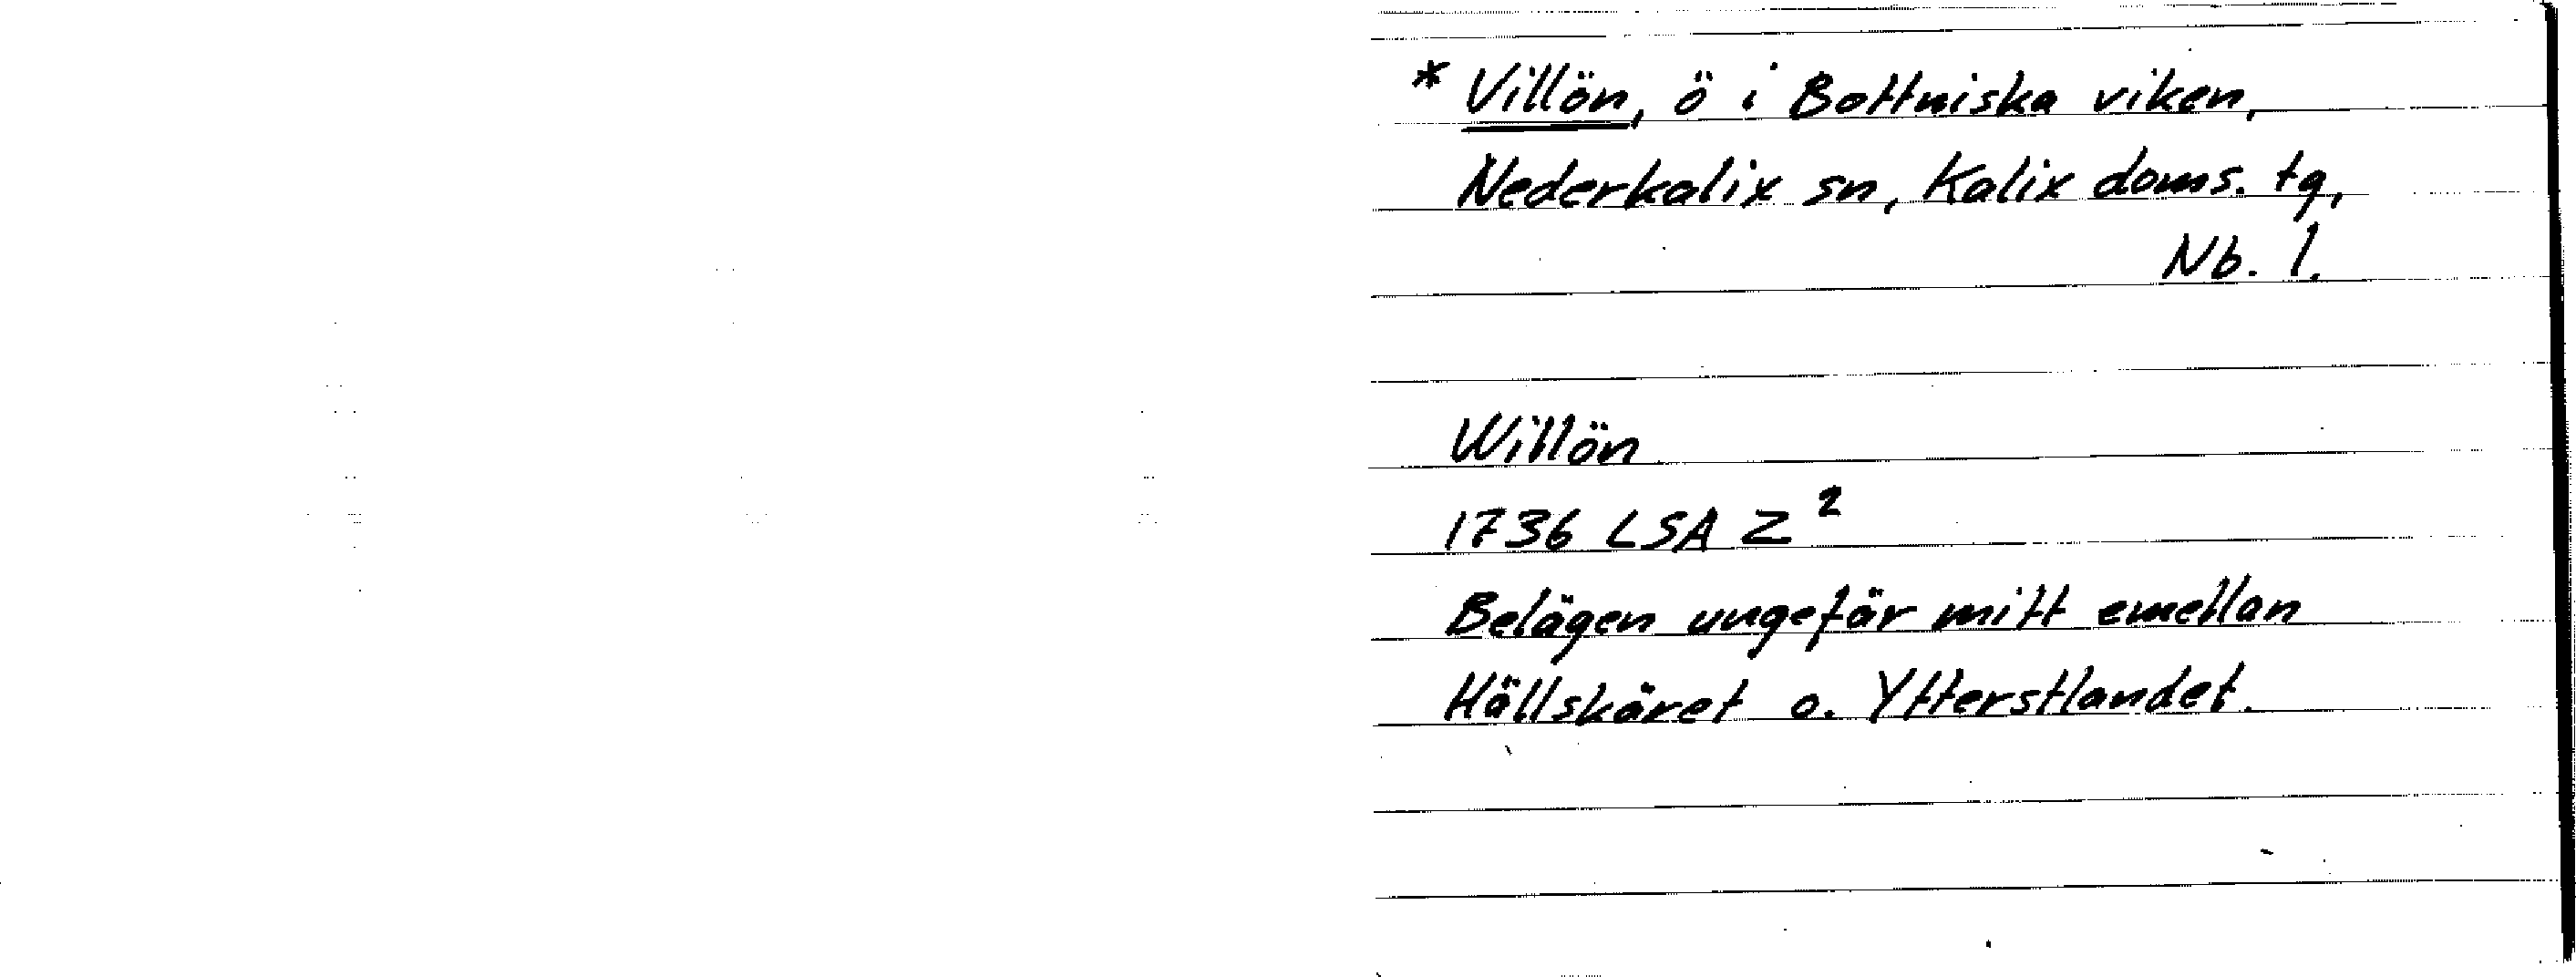 * Villön, ö i Bottniska viken,
Nederkalix sn, Kalix doms. tg,
Nb. l.
Willön
1736 LSA Z²
Belägen ungefär mitt emellan
Hällskäret o. Ytterstlandet.